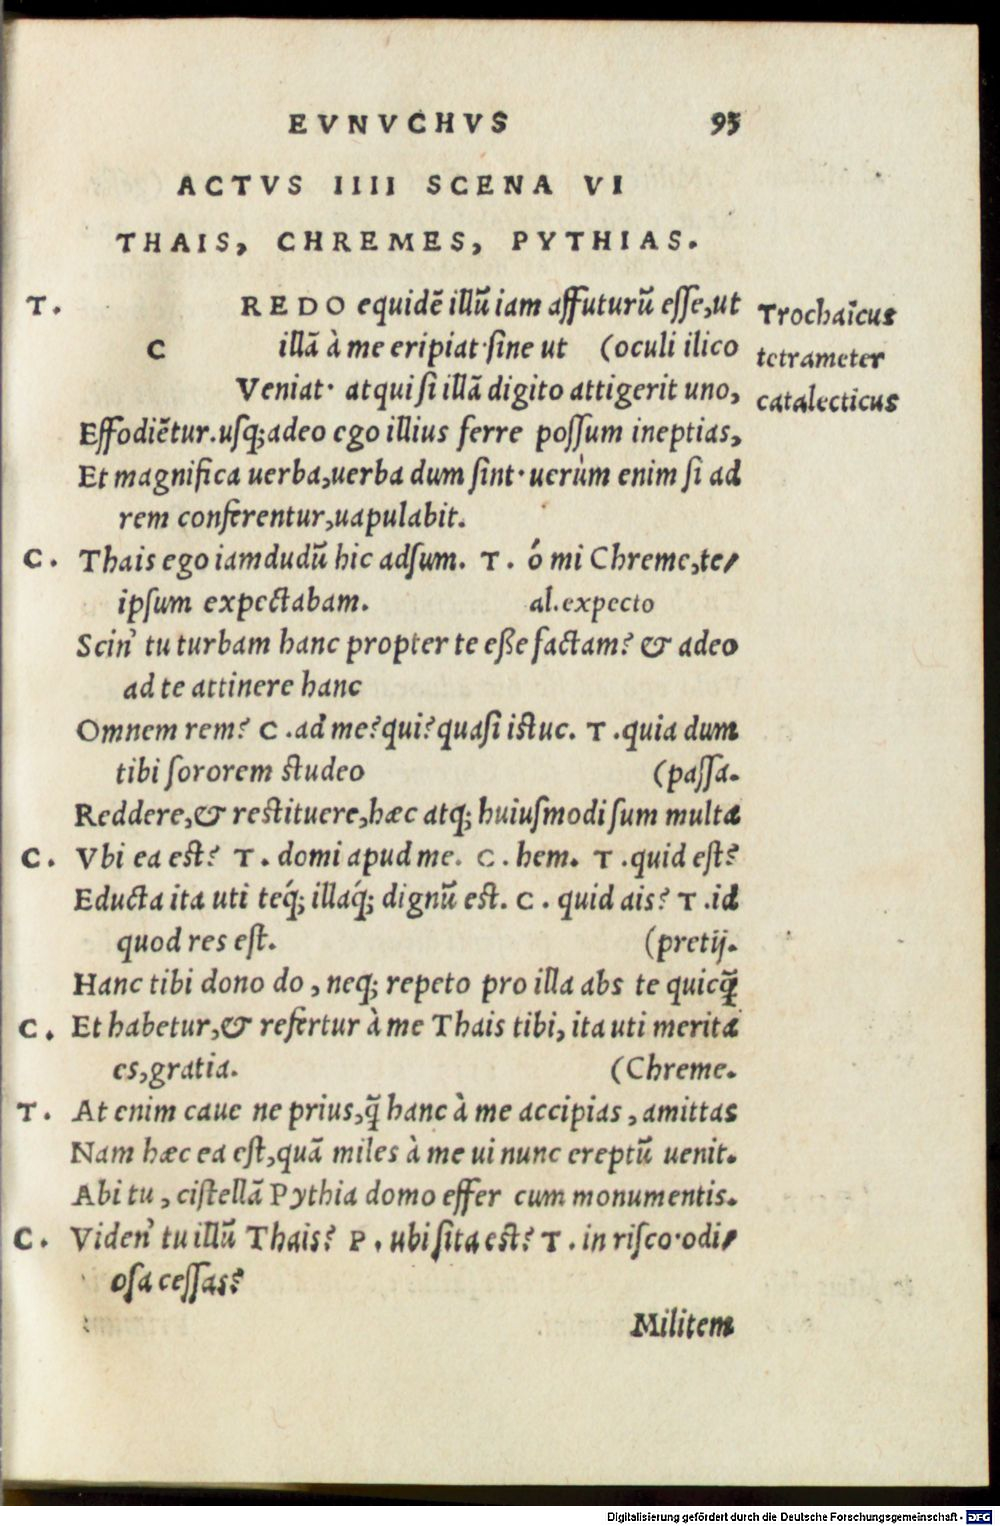 EVNVCHVS 95
ACTVS IIII SCENA VI
THAIS, CHREMES, PYTHIAS.
T. REDO equidē illū iam affuturū esse,ut Trochaicus
C illā à me eripiat·sine ut (oculi ilico tetrameter
Veniat· atqui si illā digito attigerit uno, catalecticus
Effodiētur.usq;adeo ego illius ferre possum ineptias,
Et magnifica uerba,uerba dum sint·uerùm enim si ad
rem conferentur,uapulabit.
C. Thais ego iamdudū hic adsum. T. ó mi Chreme,te/
ipsum expectabam. al.expecto
Scin' tu turbam hanc propter te eße factam? & adeo
ad te attinere hanc
Omnem rem? C.ad me?qui?quasi istuc. T.quia dum
tibi sororem studeo (passa.
Reddere,& restituere,hæc atq; huiusmodi sum multa
C. Vbi ea est? T. domi apud me. C. hem. T.quid est?
Educta ita uti teq́; illaq́; dignū est. C. quid ais? T.id
quod res est. (pretij.
Hanc tibi dono do, neq; repeto pro illa abs te quicq̄
C. Et habetur,& refertur à me Thais tibi, ita uti merita
es,gratia. (Chreme.
T. At enim caue ne prius,q̄ hanc à me accipias, amittas
Nam hæc ea est,quā miles à me ui nunc ereptū uenit.
Abi tu, cistellā Pythia domo effer cum monumentis.
C. Viden' tu illū Thais? P. ubi sita est? T. in risco·odi/
osa cessas?
Militem
Digitalisierung gefördert durch die Deutsche Forschungsgemeinschaft - DFG